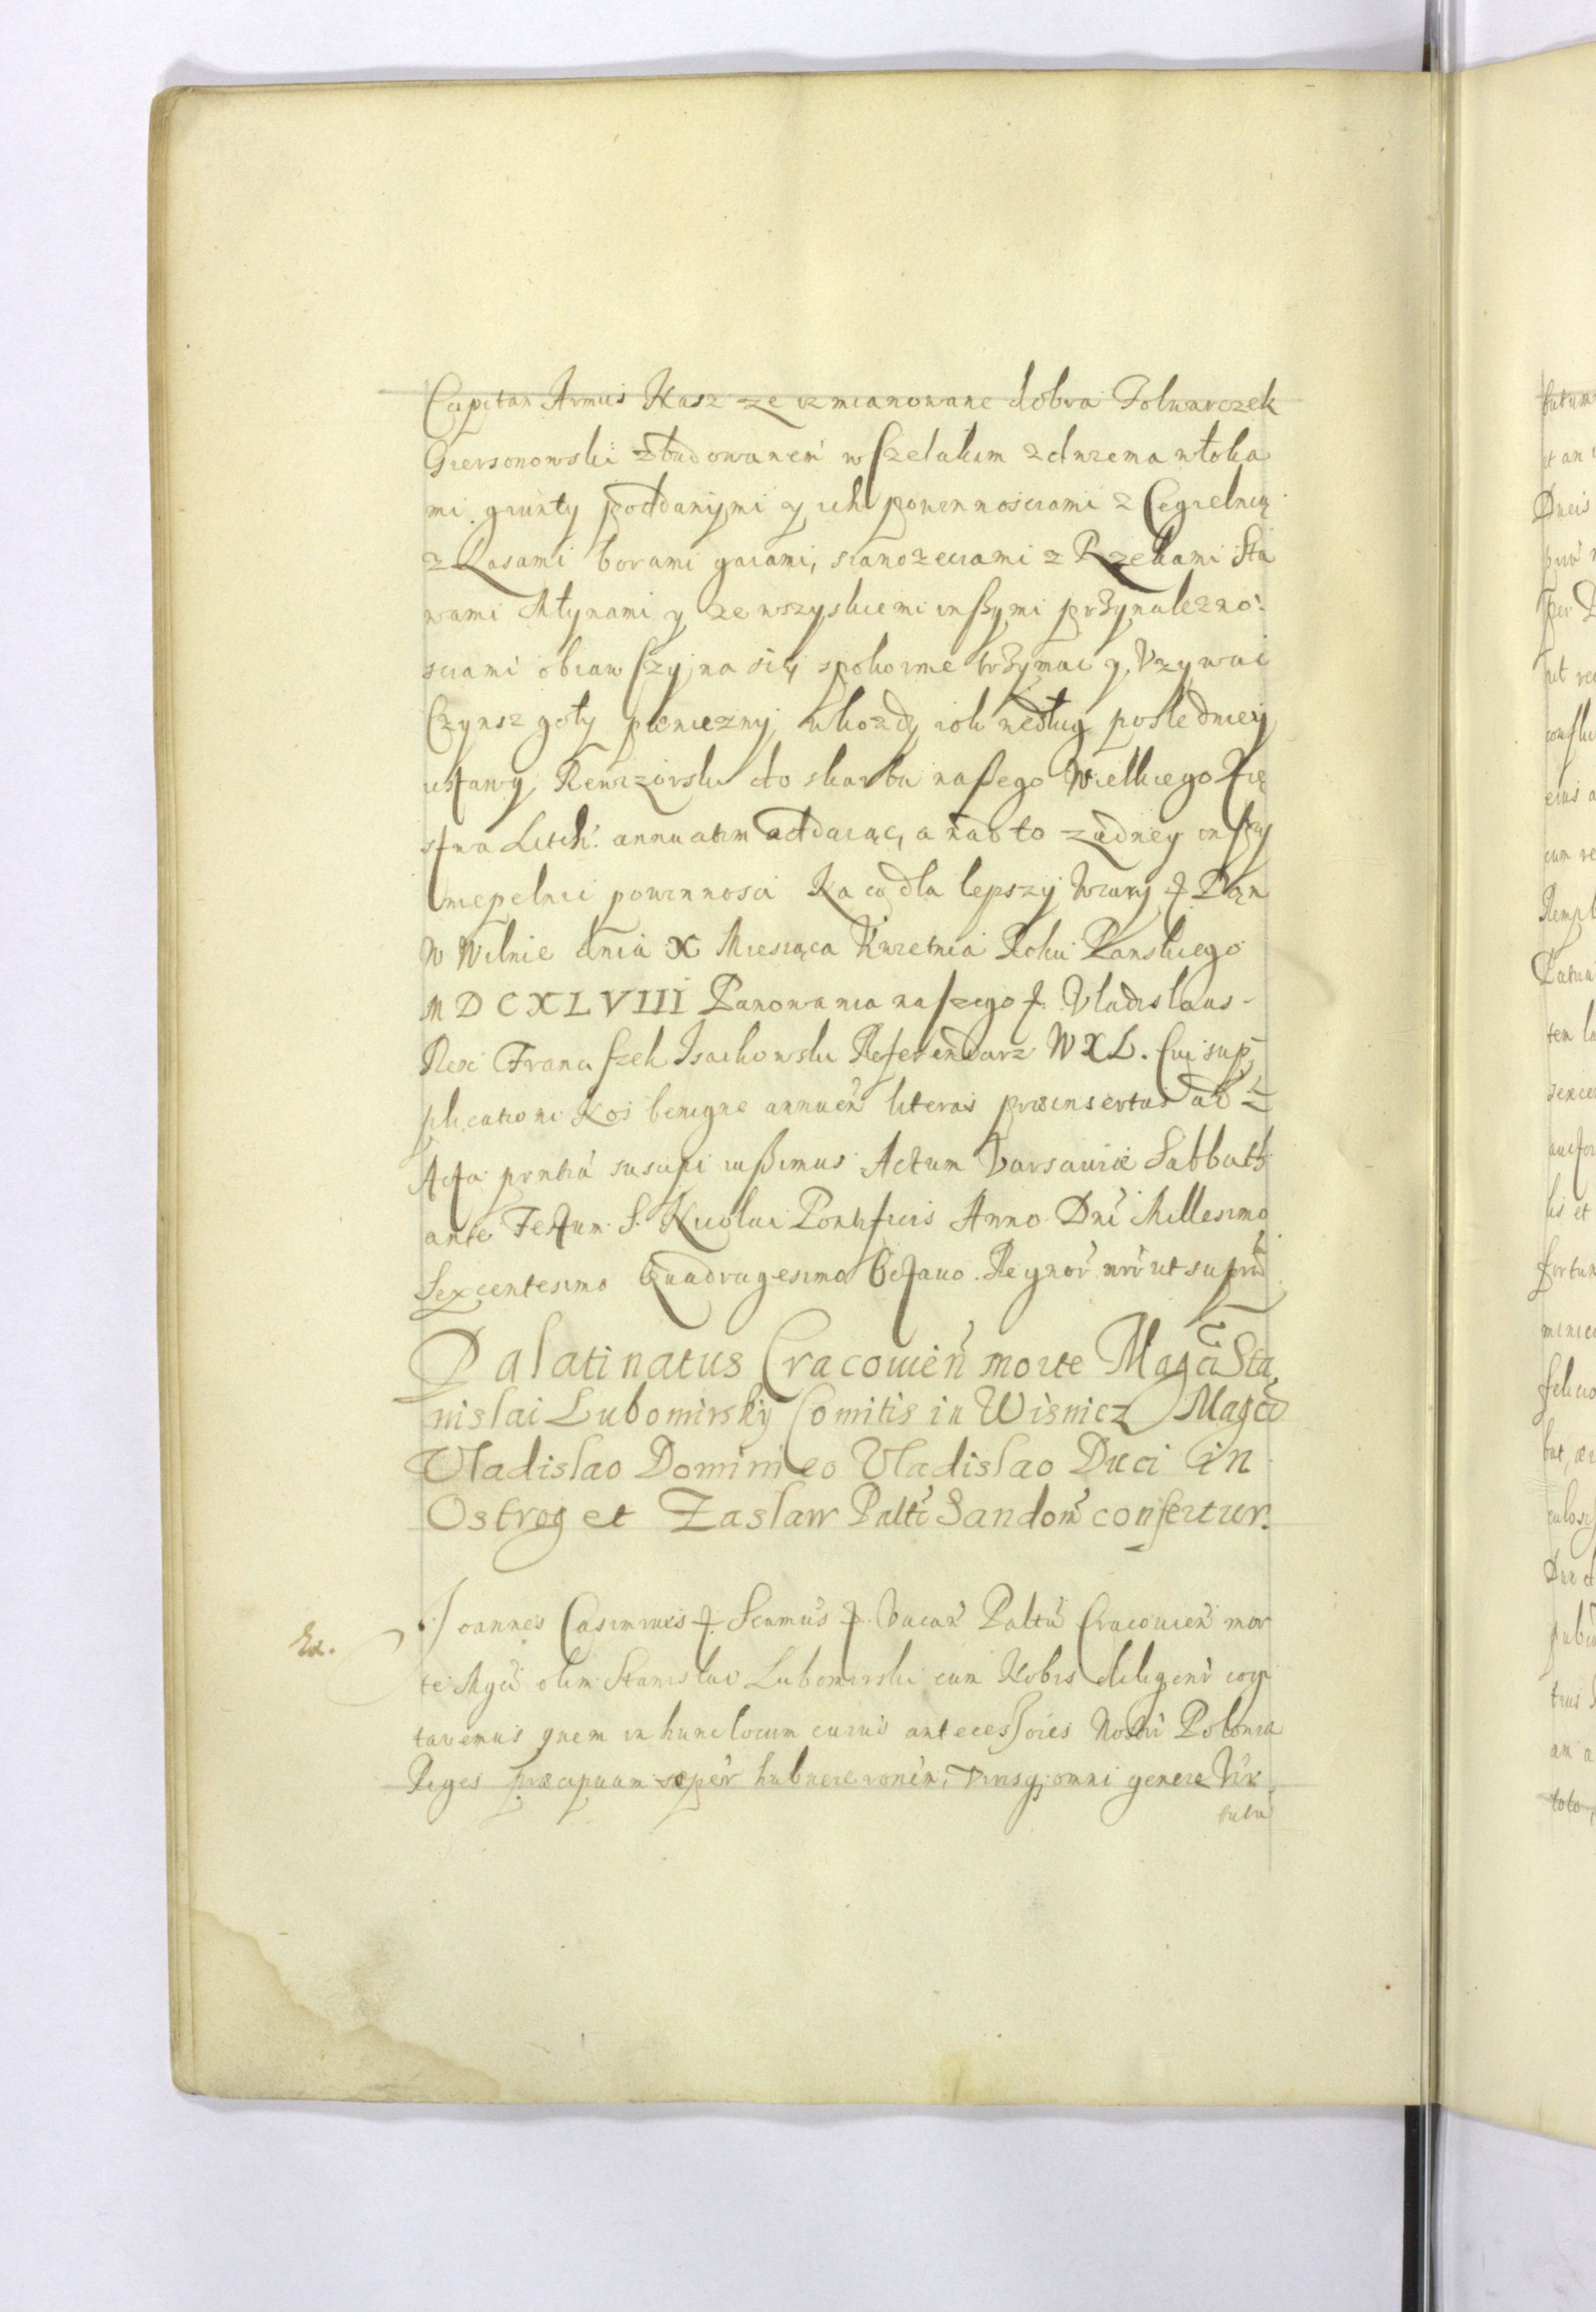 Capitan Armus Nasz ze wzmianowane dobra Folwarczek
Giersonowski z budowaniem wszelakim z dwiema włoka
mi grunty poddanymi y ich powinnosciami z Cegielnią
z Lasami borami gaiami, sianozeciami z Rzekami Sta
wami Młynami y ze wszyskiemi inßymi prżynalezno
sciami obiawszy na się spokoinie trżymac y Vzywac
Czynsz goły pieniezny, wkozdy rok wedlug posledniey
ustawy Rewizorski do skarbu naßego Wielkiego Xię
stwa Litew: annuatim oddaiąc, a nadto zadney inßey
niepełnic powinnosci Na co dla lepszy Wiary &. Dan
W Wilnie dnia X Miesiąca Kwietnia Roku Panskiego
MDCXLVIII Panowania naszego &. Vladislaus
Rex Franciszek Isaikowski Referendarz WXL. Cui sup
plicationi Nos benigne annuen̄ literas præinsertas ad
Acta prntia suscipi iußimus Actum Varsauiæ Sabbath
ante Festum S. Nicolai Pontificis Anno Dni Millesimo
Sexcentesimo Quadragesimo Octauo. Regnor nror ut supra
Palatinatus Cracouien morte Magci Sta
nislai Lubomirskÿ Comitis in Wisnicz Magco
Vladislao Dominico Vladislao Duci in
Ostrog et Zaslaw Palti Sandom confertur.
Ex.
Joannes Casimirus &. Scrmus &. Vacan Paltu Cracouien mor
te Mgci olim Stanislai Lubomirski cum Nobis diligenr cogi
taremus quem in hunc locum cuius antecessores Nostri Polonia
Reges præcipuam semper habuere ronem, Virisq; omni genere Vir
tutu